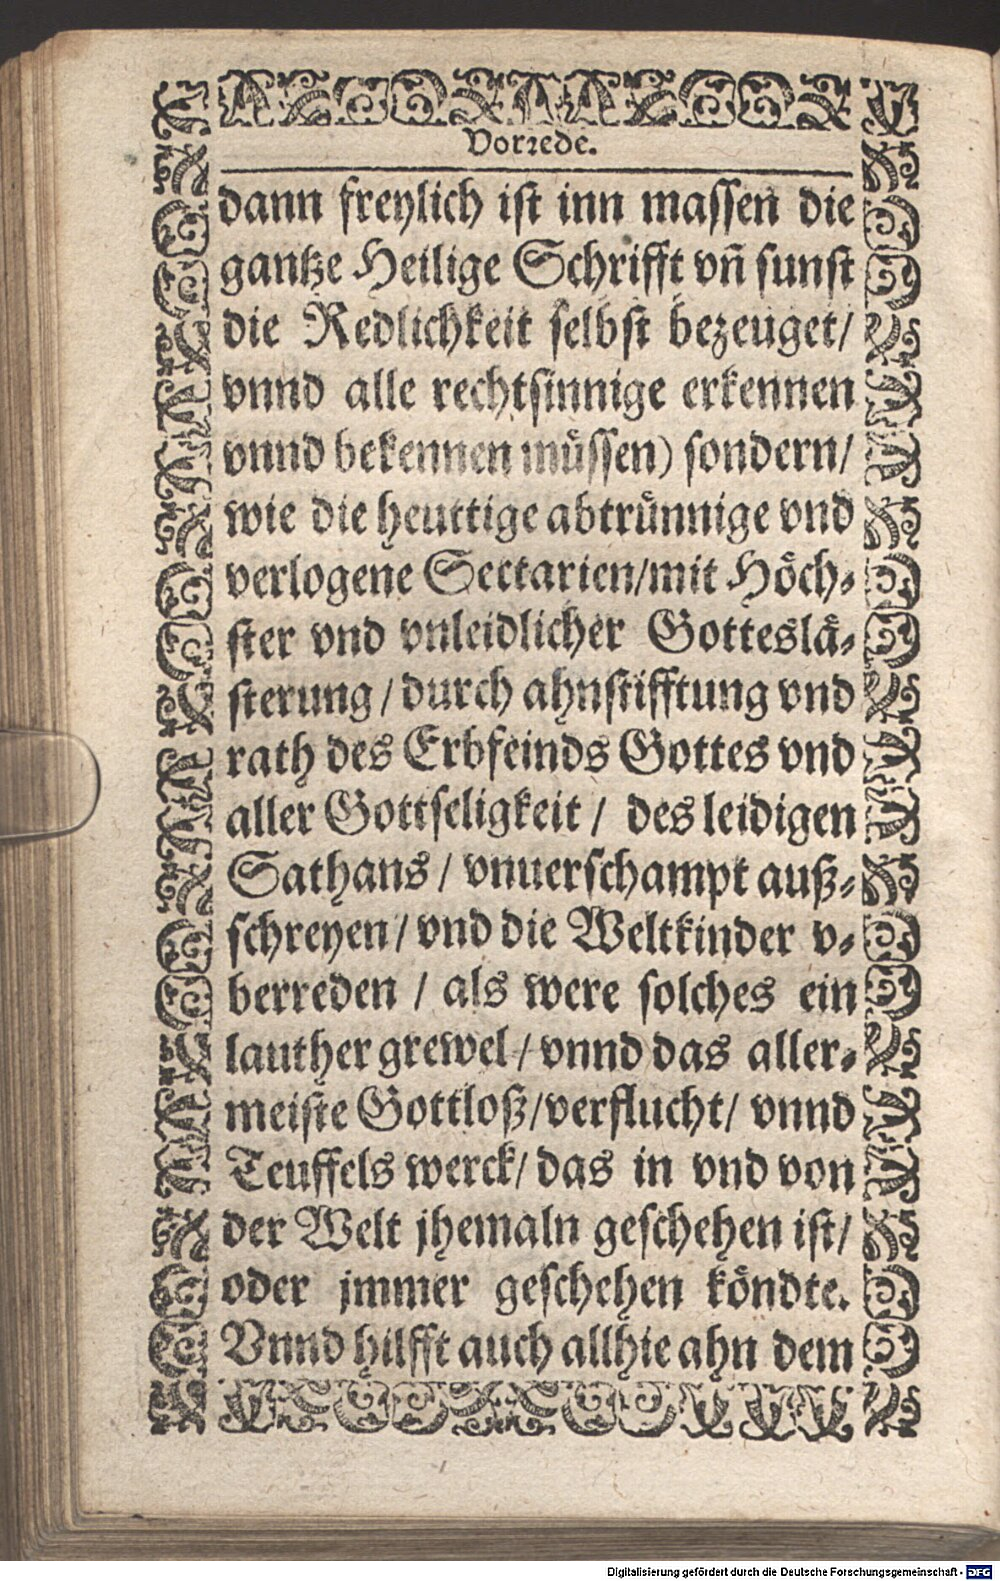 Vorrede.
dann freylich ist inn massen die
gantze Heilige Schrifft vñ sunst
die Redlichkeit selbst bezeuget/
vnnd alle rechtsinnige erkennen
vnnd bekennen müssen) sondern/
wie die heuttige abtrünnige vnd
verlogene Sectarien/mit Höch-
ster vnd vnleidlicher Gotteslä-
sterung/durch ahnstifftung vnd
rath des Erbfeinds Gottes vnd
aller Gottseligkeit/ des leidigen
Sathans/ vnuerschampt auß-
schreyen/ vnd die Weltkinder v-
berreden / als were solches ein
lauther grewel/ vnnd das aller-
meiste Gottloß/verflucht/ vnnd
Teuffels werck/ das in vnd von
der Welt jhemaln geschehen ist/
oder jmmer geschehen köndte.
Vnnd hilfft auch allhie ahn dem
Digitalisierung gefördert durch die Deutsche Forschungsgemeinschaft - DFG